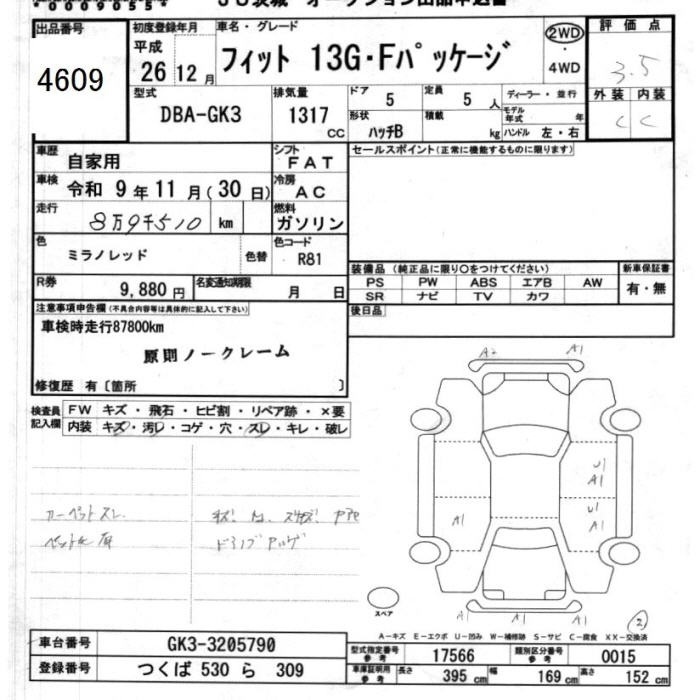 出品番号
4609
初度登録年月
平成
26 年 12 月
車名・グレード
フィット 13G・Fパッケージ
2WD
・
4WD
評価点
3.5
外装 内装
C C
型式
DBA-GK3
排気量
1317 cc
ドア
5
定員
5 人
形状
ハッチB
積載
kg
ディーラー・並行
モデル年式 年
ハンドル 左・右
車歴
自家用
シフト
FAT
車検
令和 9 年 11 月 ( 30 日)
冷房
AC
走行
8万9千510 km
燃料
ガソリン
色
ミラノレッド
色替
色コード
R81
R券
9,880 円
名変通知期限
月 日
セールスポイント(正常に機能するものに限ります)
装備品 (純正品に限り○をつけてください)
PS PW ABS エアB AW
SR ナビ TV カワ
新車保証書
有・無
後日品
注意事項申告欄(不具合内容等は具体的に記入して下さい)
車検時走行87800km
原則ノークレーム
修復歴 有〔箇所 〕
検査員記入欄
FW キズ・飛石・ヒビ割・リペア跡・×要
内装 キズ・汚レ・コゲ・穴・スレ・キレ・破レ
カーペットスレ
A2 A1
U1
A1
U1
A1
A1
A1 A1
スペア
2
A-キズ E-エクボ U-凹み W-補修跡 S-サビ C-腐食 XX-交換済
車台番号
GK3-3205790
登録番号
つくば 530 ら 309
型式指定番号 参考
17566
類別区分番号 参考
0015
車庫証明用 参考
長さ 395 cm 幅 169 cm 高さ 152 cm